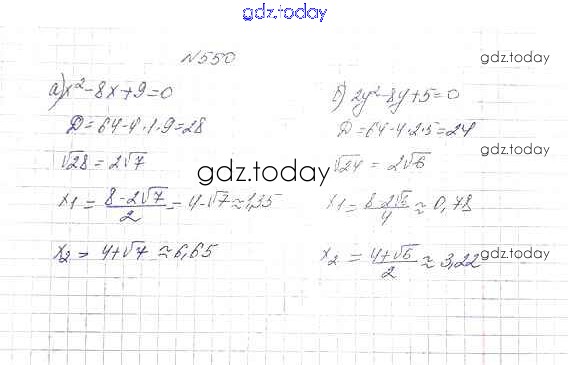 gdz.today
№550
gdz.today
а) x²-8x+9=0
D=64-4·1·9=28
√28=2√7
x₁ = (8-2√7)/2 = 4-√7 ≈ 1,35
x₂ = 4+√7 ≈ 6,65
gdz.today
б) 2y²-8y+5=0
D=64-4·2·5=24
gdz.today
√24 = 2√6
x₁ = (8-2√6)/4 ≈ 0,78
x₂ = (4+√6)/2 ≈ 3,22
gdz.today